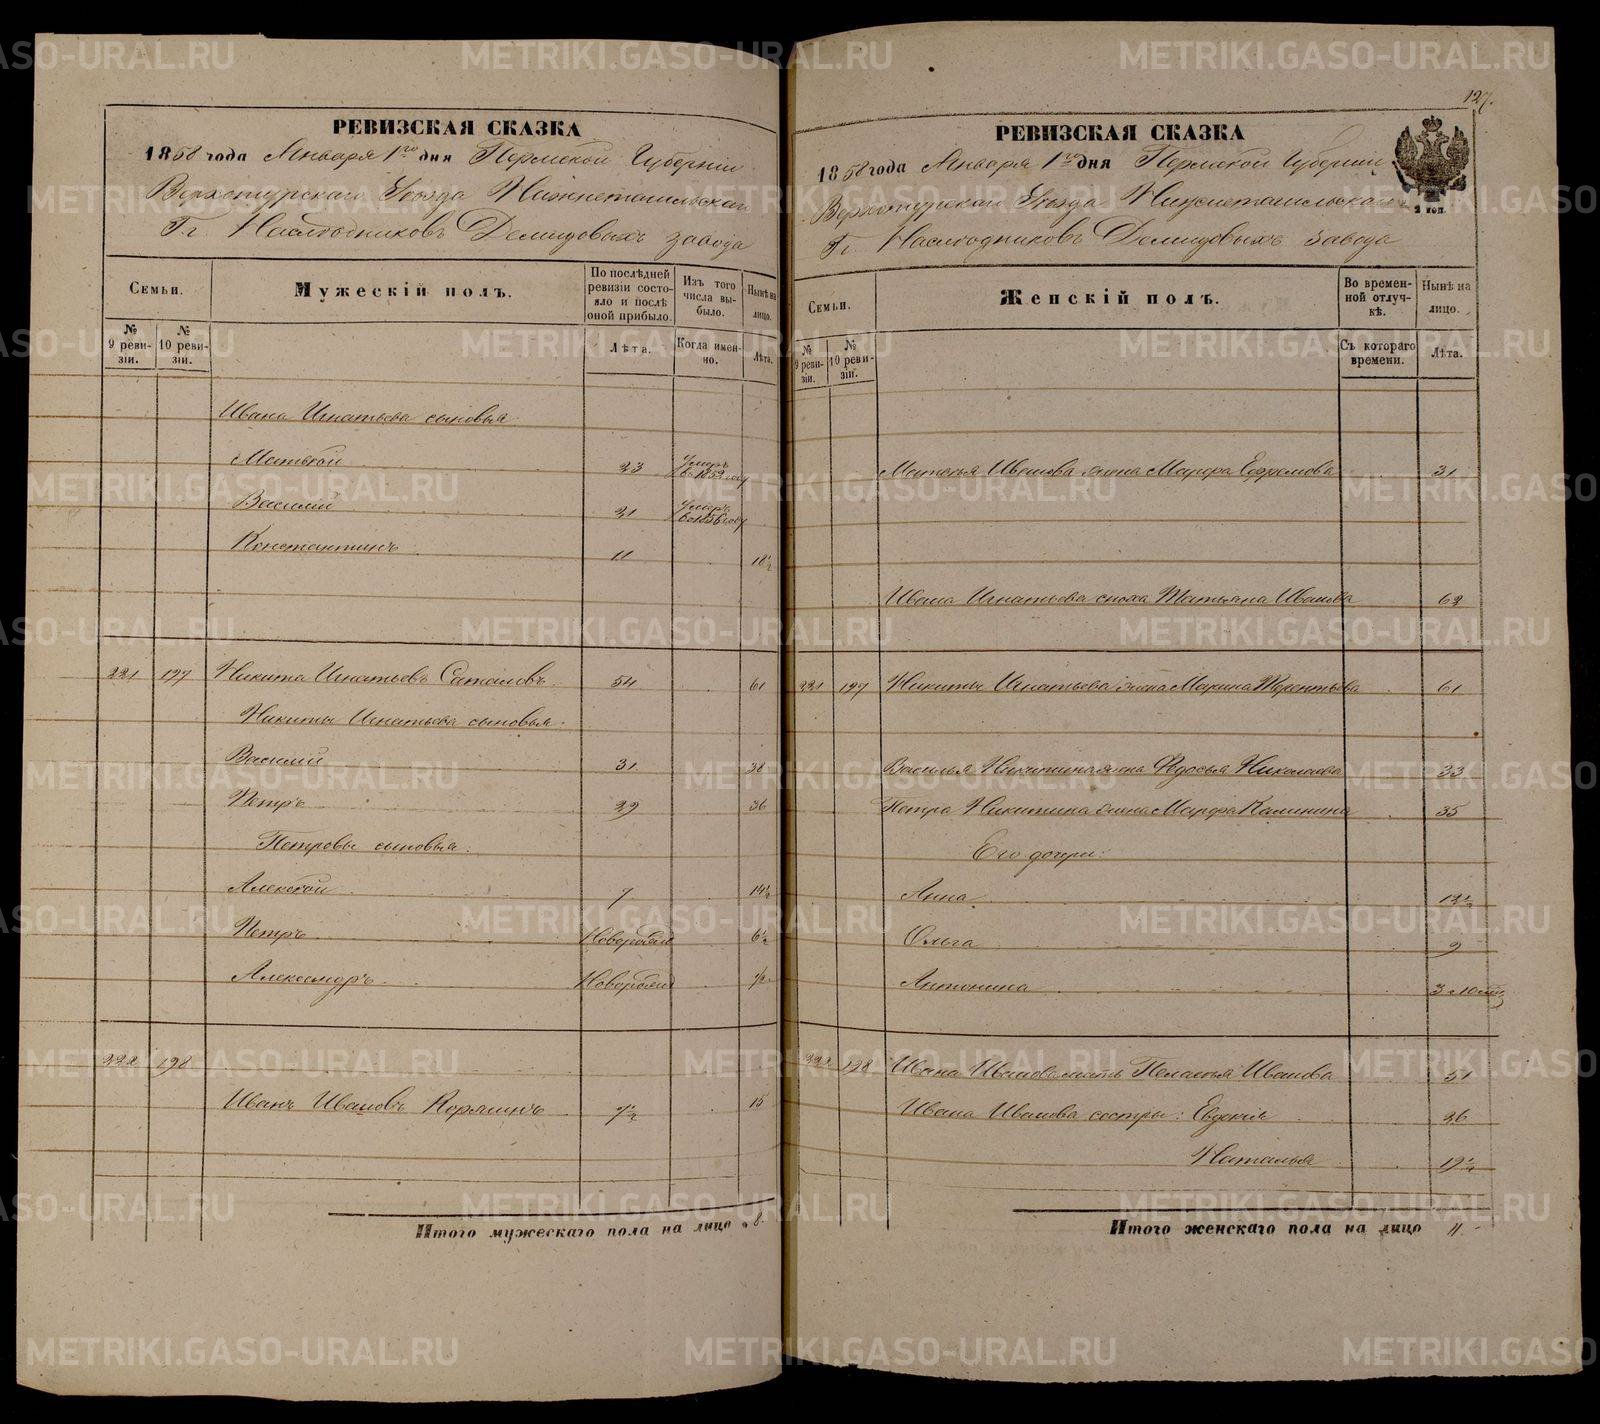 РЕВИЗСКАЯ СКАЗКА
1858 года Января 1го дня Пермской Губернии
Верхотурскаго Уезда Нижнетагильскаго
Гг. Наследниковъ Демидовыхъ завода
Семьи.
Мужескій полъ.
По послѣдней ревизіи состояло и послѣ оной прибыло.
Изъ того числа выбыло.
Нынѣ на лицо.
№ 9 ревизіи.
№ 10 ревизіи.
Лѣта.
Когда именно.
Лѣта.
Ивана Игнатьева сыновья
Матвей 23 Умеръ въ 1852 году
Василій 21 Умеръ въ 1856 году
Константинъ 11 18½
221 197 Никита Игнатьевъ 54 61
Никиты Игнатьева сыновья:
Василий 31 38
Петръ 29 36
Петровы сыновья:
Алексей 7 14½
Петръ Новорожд 6½
Александръ Новорожд ½
222 198
Иванъ Ивановъ Корякинъ 7½ 15
Итого мужескаго пола на лицо 8.
127.
РЕВИЗСКАЯ СКАЗКА
1858 года Января 1го дня Пермской Губерніи
Верхотурскаго Уезда Нижнетагильскаго
Гг. Наследниковъ Демидовыхъ завода
2 коп.
Семьи.
Женскій полъ.
Во временной отлучкѣ.
Нынѣ на лицо.
№ 9 ревизіи.
№ 10 ревизіи.
Съ котораго времени.
Лѣта.
Матвея Иванова жена Марфа Ефремова 31
Ивана Игнатьева сноха Татьяна Иванова 62
221 197 Никиты Игнатьева жена Марина Терентьева 61
Василья Никитина жена Федосья Николаева 33
Петра Никитина жена Марфа Калинина 35
Его дочери:
Анна 12½
Ольга 9
Антонина
222 198 Ивана Иванова мать Пелагея Иванова 51
Ивана Иванова сестры: Евдокия 26
Наталья 19½
Итого женскаго пола на лицо 11.
METRIKI.GASO-URAL.RU